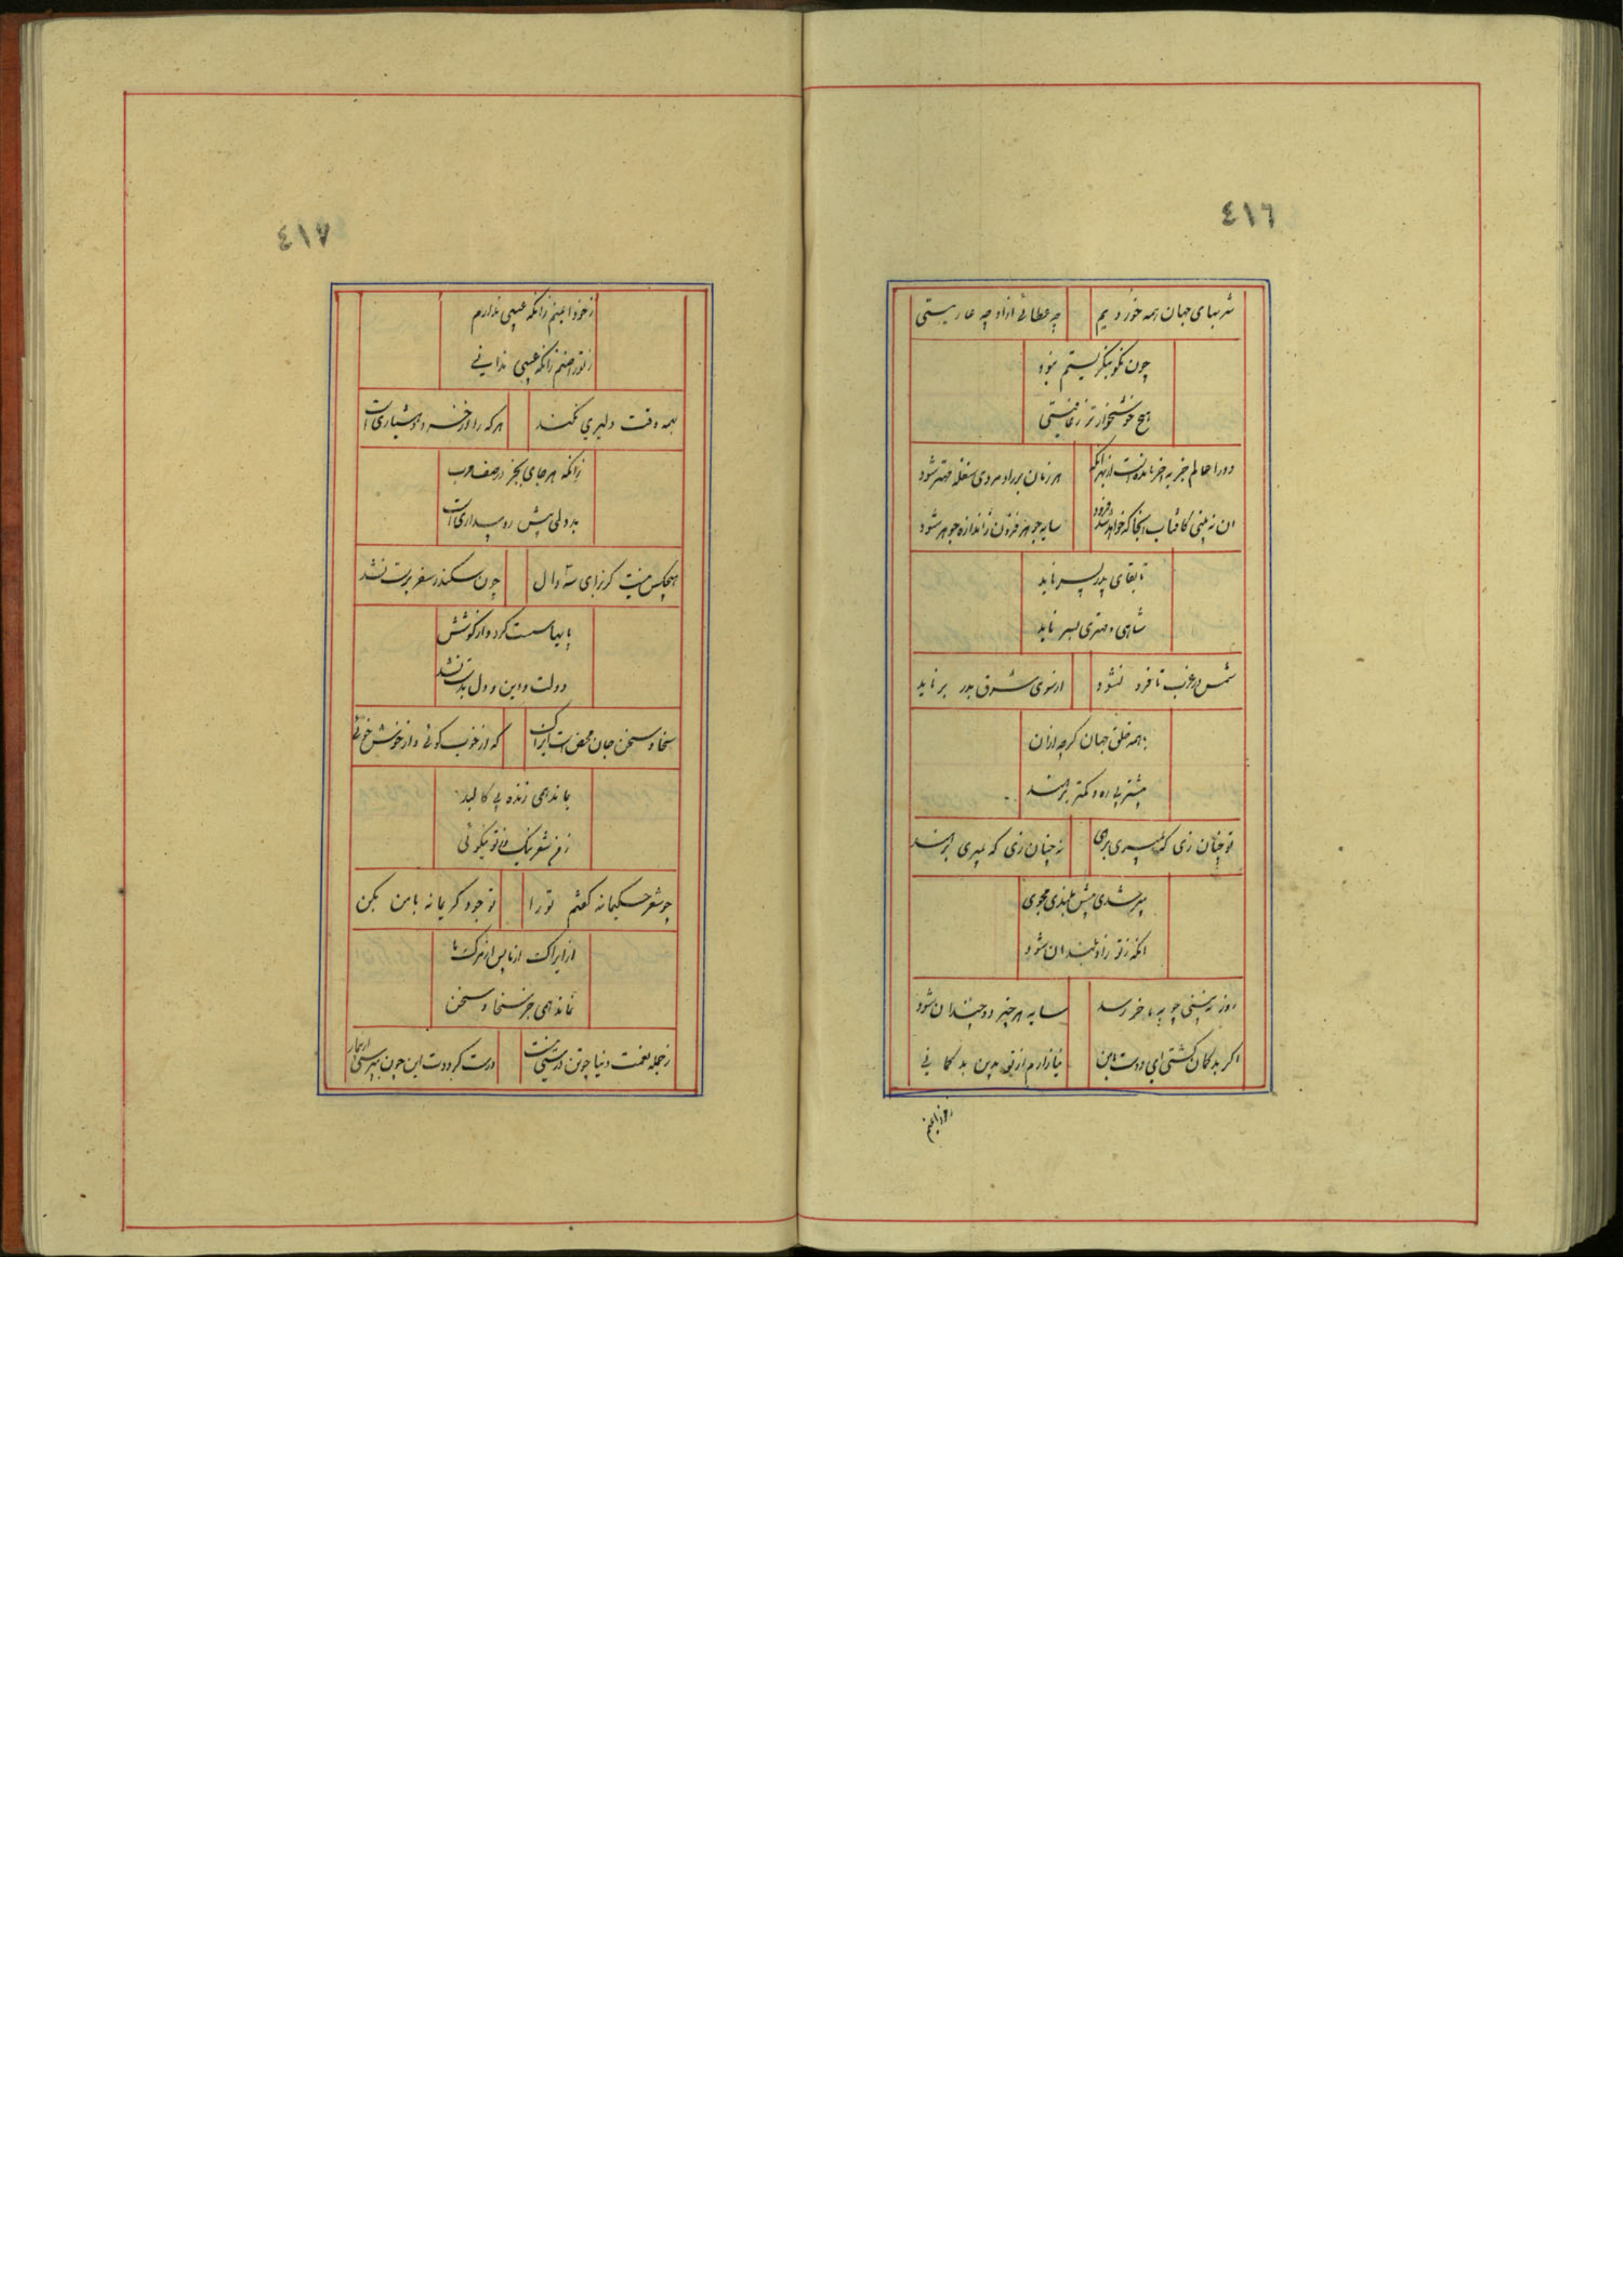 ٤١٦
شربتهای جهان همه خوردیم
چه عطائی از او چه عاریتی
چون نکو بنگریستم نبود
هیچ خوشخوارتر ز عافیتی
دور عالم جز به آخر نامده است از بهر آنک
هر زمان بر رادمردی سفله مهتر شود
آن نه بینی کافتاب آنجا که خواهد شد فرود
سایه جوهر فزون ز اندازه جوهر شود
تا بقای پدر بسر ناید
شاهی و مهتری پسر ناید
شمس در غرب تا فرو نشود
از سوی شرق بدر بر ناید
با همه خلق جهان گرچه از آن
بیشتر بی ره و کمتر برهند
تو چنان زی که بمیری برهی
نه چنان زی که بمیری برهند
پیر شدی پیش بلندی مجوی
آنکه ز تو زاد بلند آن شود
روز نه بینی چو به آخر رسد
سایه هر چیز دو چندان شود
اگر بدگمان گشتی ای دوست با من
نیازارم از تو بدین بدگمانی
ز خود ایمنم
٤١٧
ز خود ایمنم زانکه عیبی ندارم
ز تو راضیم زانکه عیبی ندانی
همه وقت دلیری نکند
هرکه را از خرد و هشیاری است
زانکه هر جای بجز در صف حرب
بددلی پیش رو بیداری است
هیچکس نیست کز برای سه دال
چون سکندر سفر پرست نشد
پایها سست کرد و از کوشش
دولت و دین و دل بدست نشد
سخا و سخن جان محض است ایراک
که از خوب گوئی و از خوش خوئی
بماندهمی زنده بی کالبد
ز من شعر نیک و ز تو نیکوئی
چو شعر حکیمانه گفتم تو را
تو جود کریمانه با من بکن
از ایراک از ما پس از مرگ ما
نماندهمی جز سخا و سخن
ز جمله نعمت دنیا چو تن درستی نیست
درست گرددت این چون بپرسی از بیمار